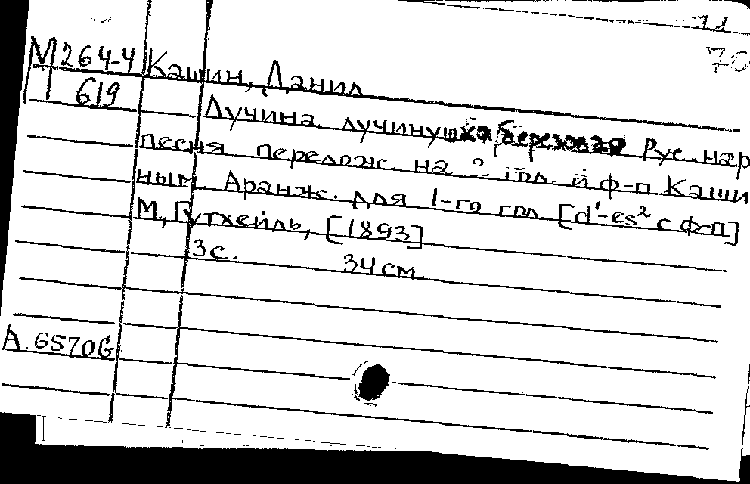 11
70
М 264-4 Кашин, Данил
619
Лучина лучинушка березовая Рус. нар
песня перелож. на 2 гол. и ф-п Каши
ным. Аранж. для 1-го гол. [d¹-es² с ф-п]
М, Гутхейль, [1893]
3с. 34 см
А. 6570б